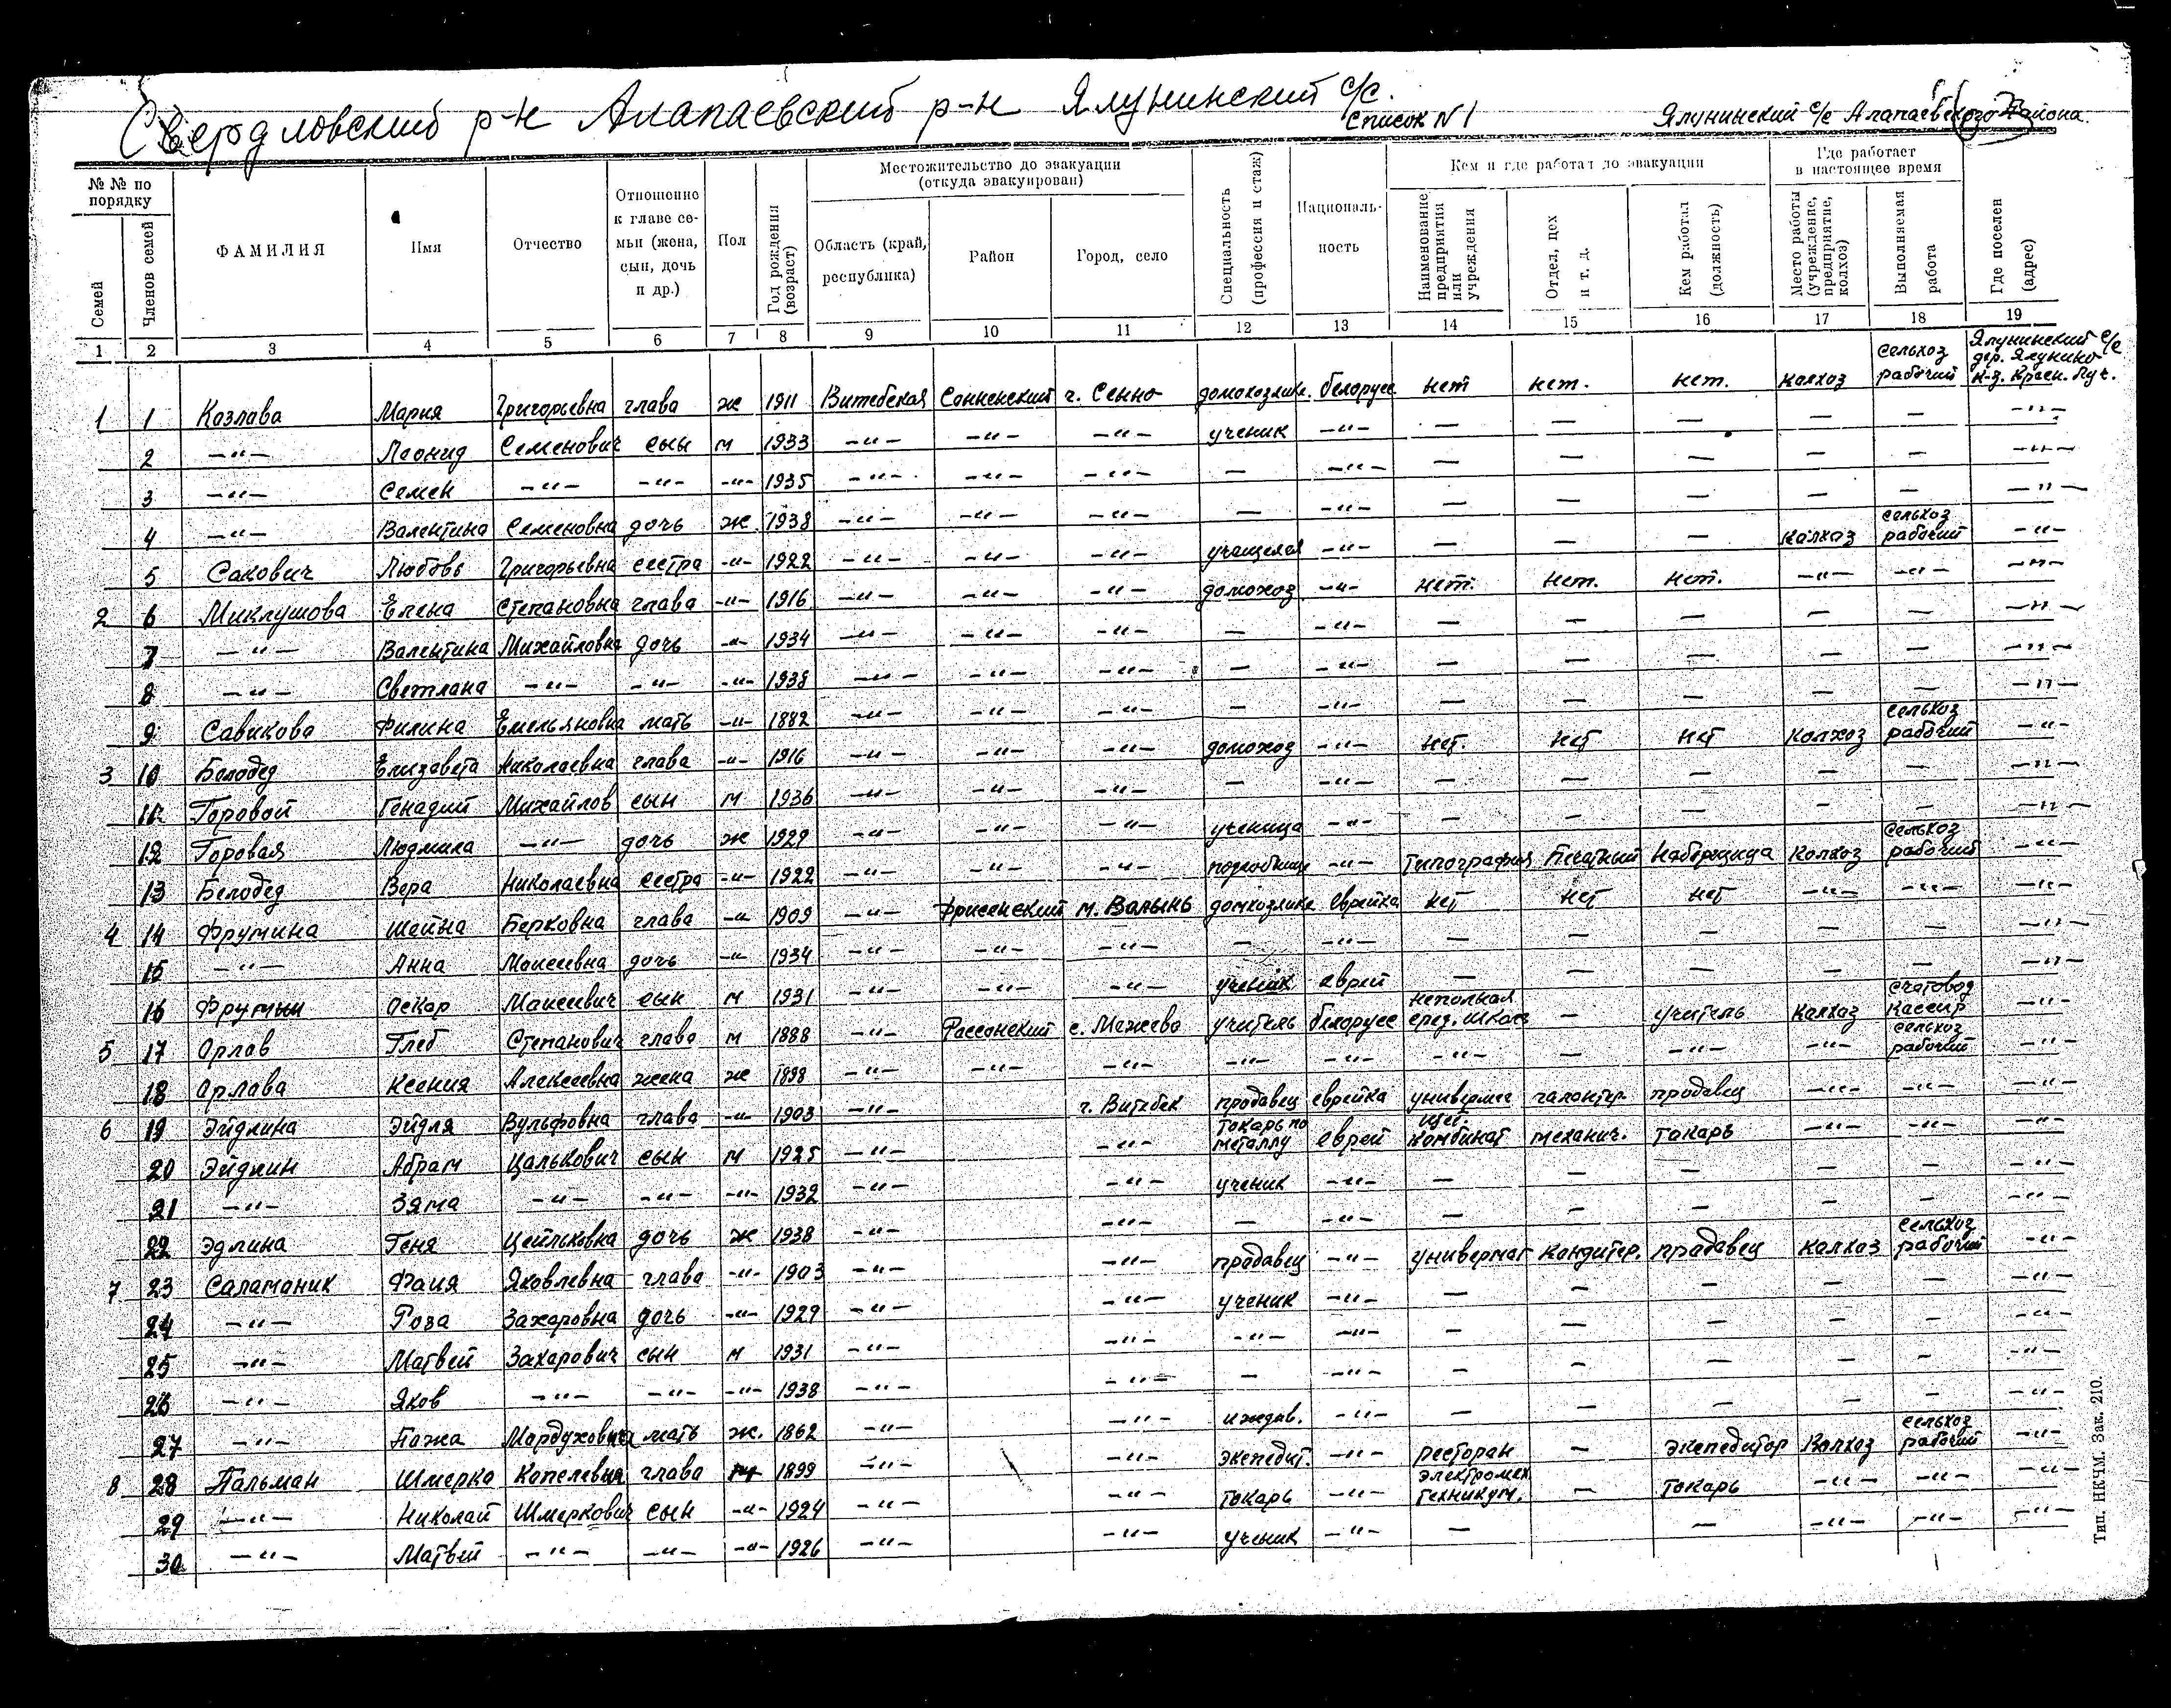 Свердловский р-н Алапаевский р-н Ялунинский с/с.
Список N 1
Ялунинский с/с Алапаевского района.
№ № по порядку
Семей
Членов семей
ФАМИЛИЯ
Имя
Отчество
Отношение к главе семьи (жена, сын, дочь и др.)
Пол
Год рождения (возраст)
Местожительство до эвакуации (откуда эвакуирован)
Область (край, республика)
Район
Город, село
Специальность (профессия и стаж)
Национальность
Кем и где работал до эвакуации
Наименование предприятия или учреждения
Отдел, цех и т. д.
Кем работал (должность)
Где работает в настоящее время
Место работы (учреждение, предприятие, колхоз)
Выполняемая работа
Где поселен (адрес)
1 2 3 4 5 6 7 8 9 10 11 12 13 14 15 16 17 18 19
1 1 Козлава Мария Григорьевна глава ж 1911 Витебская Сенненский г. Сенно домохозяик. белорусс нет нет. нет. колхоз сельхоз рабочий Ялунинский с/с дер. Ялунино к-з. Красн. Луч.
2 —"— Леонид Семенович сын м 1933 —"— —"— —"— ученик —"— — — — — — —"—
3 —"— Семен —"— —"— —"— 1935 —"— —"— —"— — —"— — — — — — —"—
4 —"— Валентина Семеновна дочь ж 1938 —"— —"— —"— — —"— — — — — — —"—
5 Сакович Любовь Григорьевна сестра —"— 1922 —"— —"— —"— учащаяся —"— — — — калхоз сельхоз рабочий —"—
2 6 Миклушова Елена Степановна глава —"— 1916 —"— —"— —"— домохоз —"— нет. нет. нет. —"— —"— —"—
7 —"— Валентина Михайловна дочь —"— 1934 —"— —"— —"— — —"— — — — — — —"—
8 —"— Светлана —"— —"— —"— 1938 —"— —"— —"— — —"— — — — — — —"—
9 Савикова Филина Емельяновна мать —"— 1882 —"— —"— —"— — —"— — — — — — —"—
3 10 Белобед Елизавета Николаевна глава —"— 1916 —"— —"— —"— домохоз —"— нет. нет нет колхоз сельхоз рабочий —"—
11 Горовой Генадий Михайлов сын м 1936 —"— —"— —"— — —"— — — — — — —"—
12 Горовая Людмила —"— дочь ж 1929 —"— —"— —"— ученица —"— — — — — — —"—
13 Белобед Вера Николаевна сестра —"— 1922 —"— —"— —"— —"— типография Печатный Наборщица колхоз сельхоз рабочий —"—
4 14 Фрумина Шейна Берковна глава —"— 1909 —"— м. Валынь домхозяика еврейка нет нет нет —"— —"— —"—
15 —"— Анна Моисеевна дочь —"— 1934 —"— —"— —"— — —"— — — — — — —"—
16 Фрумин Оскар Маисеевич сын м 1931 —"— —"— —"— ученик еврей — — — — — —"—
5 17 Орлав Глеб Степанович глава м 1888 —"— Рассонский с. Межево учитель белорусс неполная сред. школа — учитель калхаз счетовод кассир —"—
18 Орлава Ксения Алексеевна жена ж 1898 —"— —"— —"— —"— —"— —"— — —"— —"— сельхоз рабочий —"—
6 19 Эйдлина Эйдля Вульфовна глава —"— 1903 —"— г. Витебск продавец еврейка универмаг галантер. продавец —"— —"— —"—
20 Эйдлин Абрам Цалькович сын м 1925 —"— —"— токарь по металлу еврей комбинат механич. токарь —"— —"— —"—
21 —"— Зяма —"— —"— —"— 1932 —"— —"— ученик —"— — — — — — —"—
22 Эдлина Геня Цейльковна дочь ж 1938 —"— —"— — —"— — — — — — —"—
7 23 Саламаник Фаня Яковлевна глава —"— 1903 —"— —"— продавец —"— универмаг кондитер. прадавец калхаз сельхоз рабочий —"—
24 —"— Роза Захаровна дочь —"— 1929 —"— —"— ученик —"— — — — — — —"—
25 —"— Матвей Захарович сын м 1931 —"— —"— —"— —"— — — — — — —"—
26 —"— Яков —"— —"— —"— 1938 —"— —"— — —"— — — — — — —"—
27 —"— Мордуховна мать ж. 1862 —"— —"— иждив. —"— — — — — — —"—
8 28 Пальман Шмерко Копелевич глава м 1899 —"— —"— экспедит. —"— ресторан — экспедитор Колхоз сельхоз рабочий —"—
29 —"— Николай Шмеркович сын —"— 1924 —"— —"— токарь —"— электромех. техникум. — токарь —"— —"— —"—
30 —"— Матвей —"— —"— —"— 1926 —"— —"— ученик —"— — — —"— —"— —"—
Тип. НКЧМ. Зак. 210.